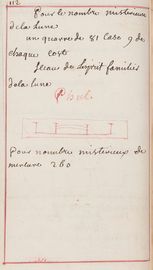 112
Pour le nombre misterieux
de la Lune
un quarre de 81 Caso 9 de
chaque costé
Sceau des Esprit familier
de la Lune
Phul
Pour nombre misterieux de
mercure 260